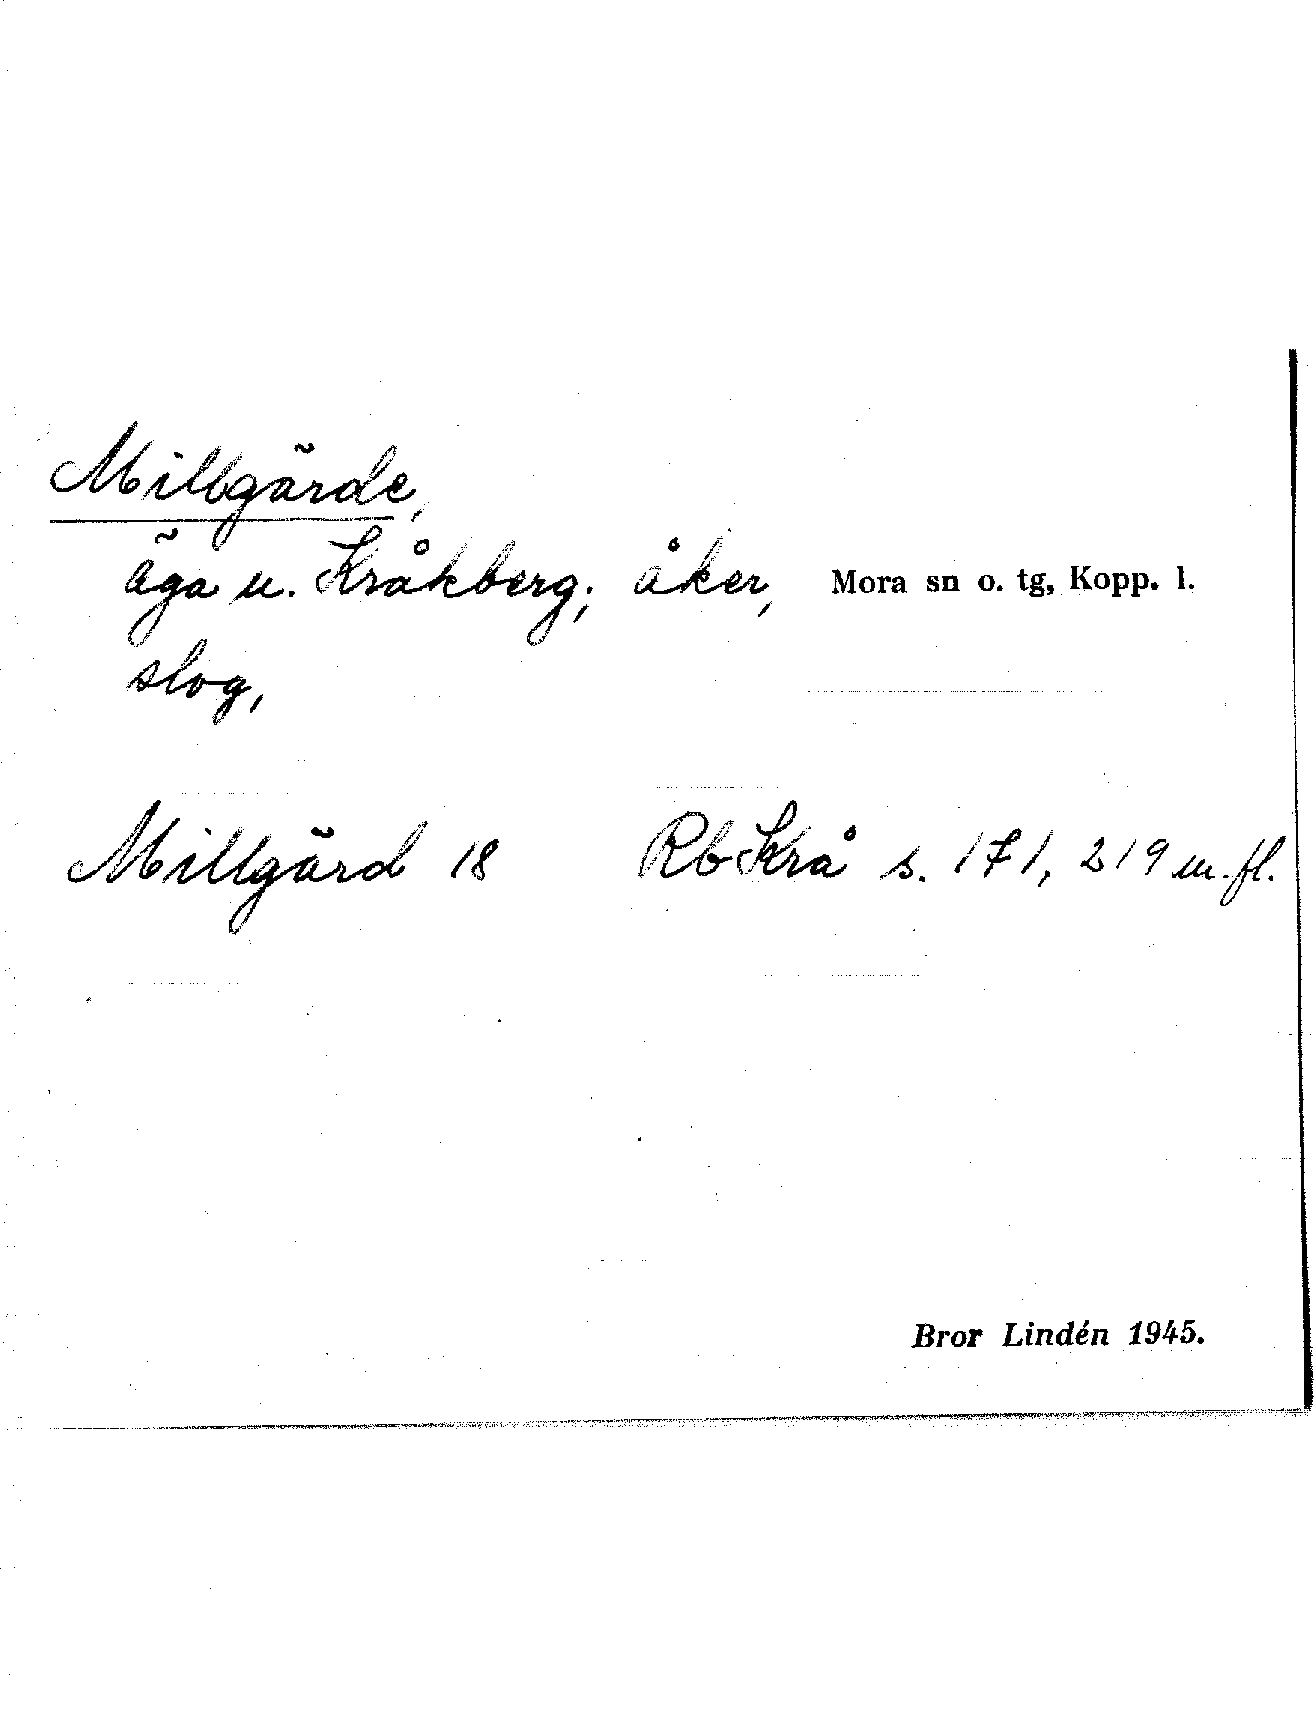 Millgärde,
äga u. Kråkberg; åker, Mora sn o. tg, Kopp. l.
slog,
Millgärd 18 Rb Krå s. 171, 219 m. fl.
Bror Lindén 1945.